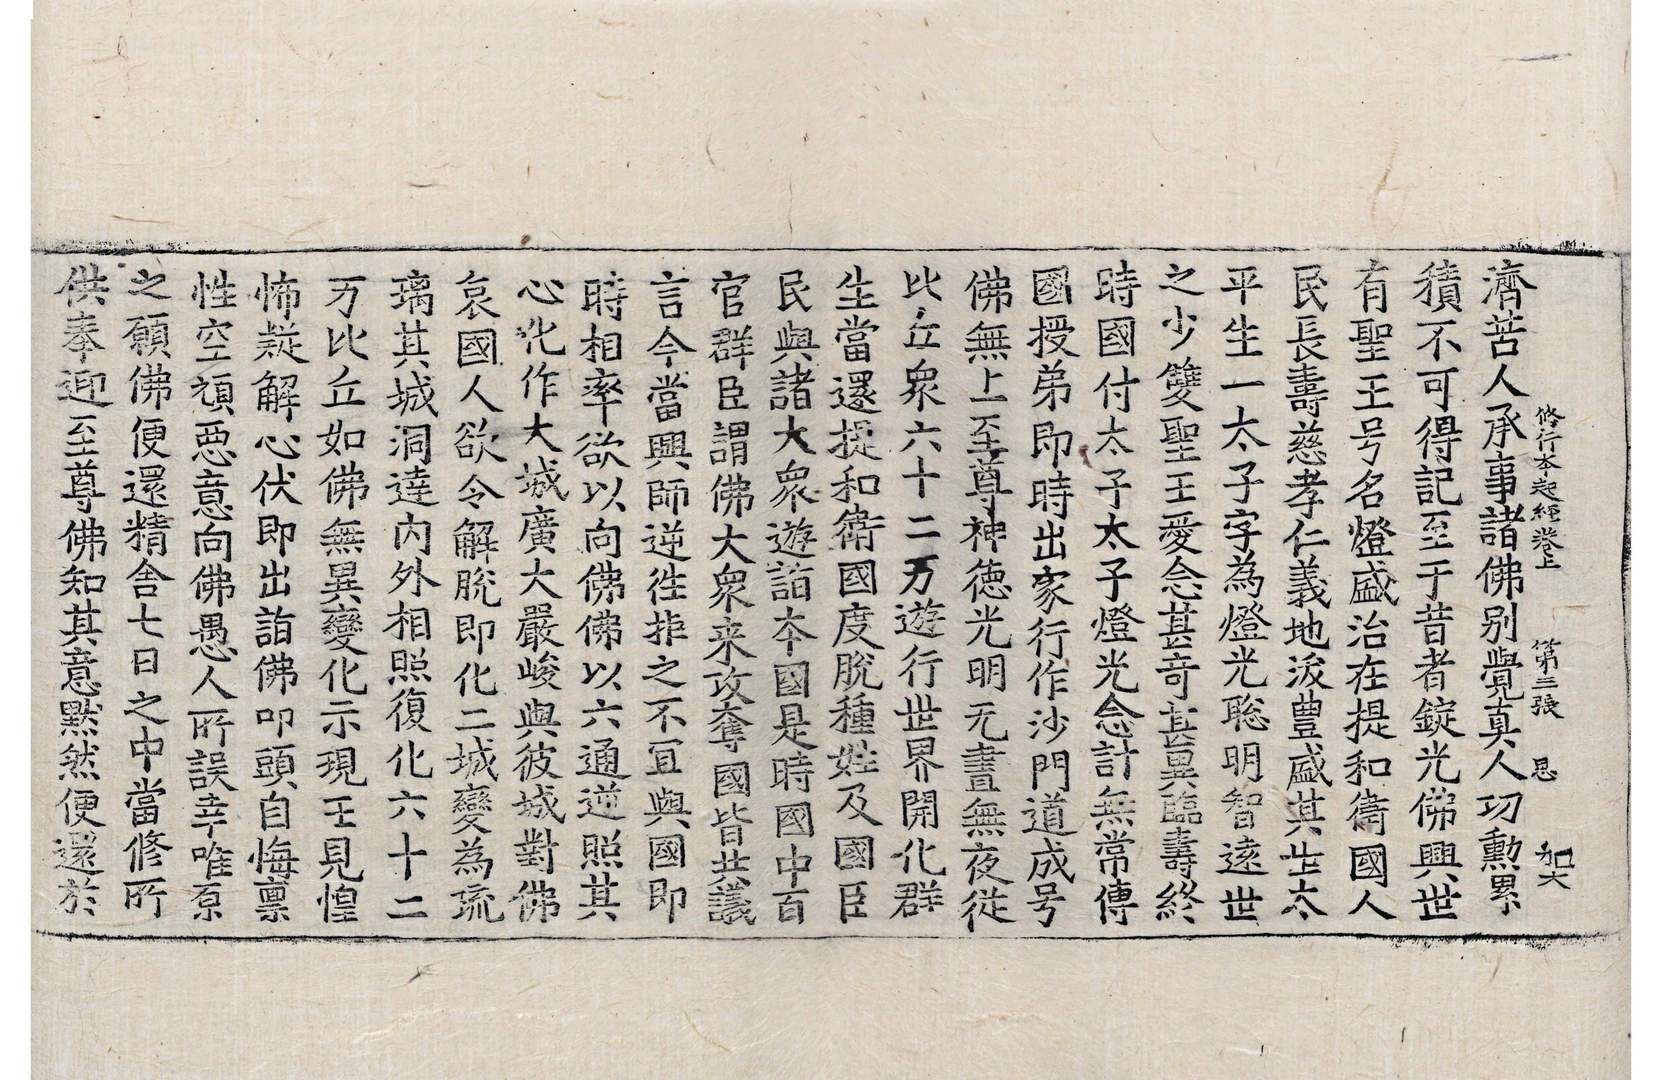 修行本起經卷上 第三張 思 加大
濟苦人承事諸佛別覺真人功勳累
積不可得記至于昔者錠光佛興世
有聖王号名燈盛治在提和衛國人
民長壽慈孝仁義地沃豊盛其世太
平生一太子字為燈光聡明智逺世
之少雙聖王愛念甚竒甚異臨壽終
時國付太子太子燈光念計無常傳
國授弟即時出家行作沙門道成号
佛無上至尊神徳光明无晝無夜從
比丘衆六十二万遊行世界開化群
生當還提和衛國度脫種姓及國臣
民與諸大衆遊詣本國是時國中百
官群臣謂佛大衆来攻奪國皆共議
言今當興師逆徃拒之不冝與國即
時相率欲以向佛佛以六通逆照其
心化作大城廣大嚴峻與彼城對佛
哀國人欲令解脫即化二城變為琉
璃其城洞達內外相照復化六十二
万比丘如佛無異變化示現王見惶
怖疑解心伏即出詣佛叩頭自悔禀
性空頑惡意向佛愚人所誤幸唯原
之願佛便還精舍七日之中當修所
供奉迎至尊佛知其意默然便還於